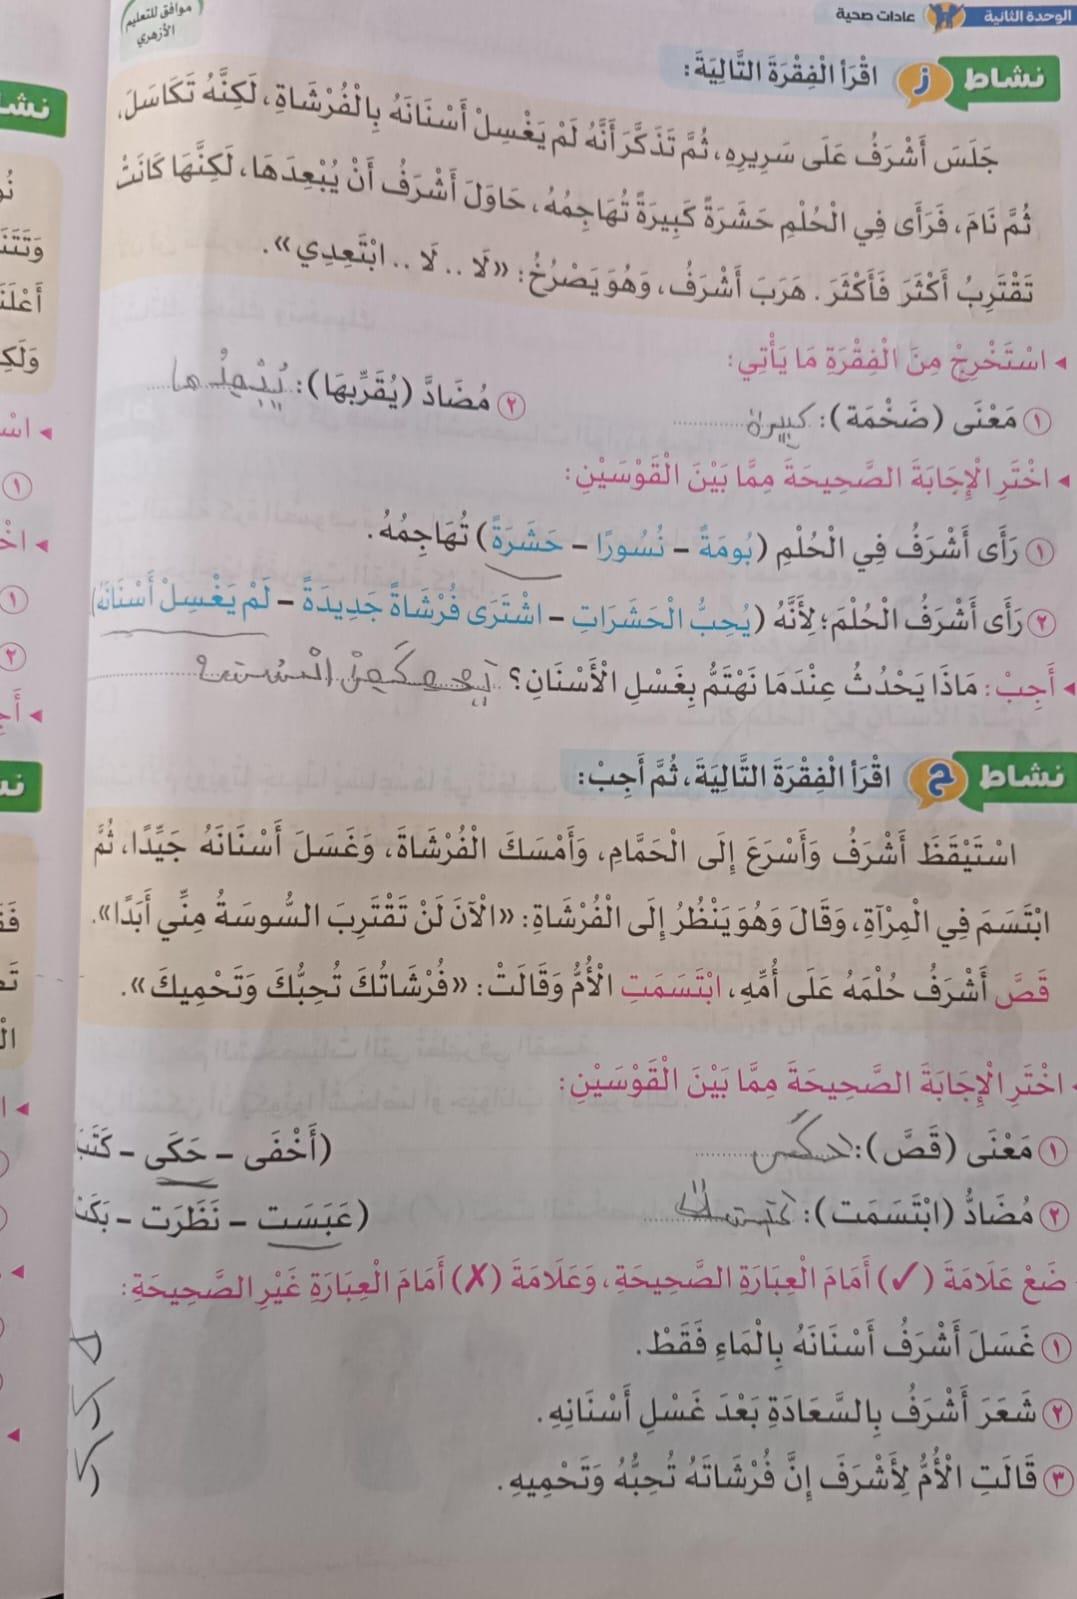 الوحدة الثانية عادات صحية
موافق للتعليم الأزهري
نشاط ز اقْرَأِ الْفِقْرَةَ التَّالِيَةَ:
جَلَسَ أَشْرَفُ عَلَى سَرِيرِهِ، ثُمَّ تَذَكَّرَ أَنَّهُ لَمْ يَغْسِلْ أَسْنَانَهُ بِالْفُرْشَاةِ، لَكِنَّهُ تَكَاسَلَ،
ثُمَّ نَامَ، فَرَأَى فِي الْحُلْمِ حَشَرَةً كَبِيرَةً تُهَاجِمُهُ، حَاوَلَ أَشْرَفُ أَنْ يُبْعِدَهَا، لَكِنَّهَا كَانَتْ
تَقْتَرِبُ أَكْثَرَ فَأَكْثَرَ. هَرَبَ أَشْرَفُ، وَهُوَ يَصْرُخُ: «لَا .. لَا .. ابْتَعِدِي».
◂ اسْتَخْرِجْ مِنَ الْفِقْرَةِ مَا يَأْتِي:
١ مَعْنَى (ضَخْمَة): كبيرة
٢ مُضَادَّ (يُقَرِّبُهَا): يُبْعِدُها
◂ اخْتَرِ الْإِجَابَةَ الصَّحِيحَةَ مِمَّا بَيْنَ الْقَوْسَيْنِ:
١ رَأَى أَشْرَفُ فِي الْحُلْمِ (بُومَةً - نُسُورًا - حَشَرَةً) تُهَاجِمُهُ.
٢ رَأَى أَشْرَفُ الْحُلْمَ؛ لِأَنَّهُ (يُحِبُّ الْحَشَرَاتِ - اشْتَرَى فُرْشَاةً جَدِيدَةً - لَمْ يَغْسِلْ أَسْنَانَهُ)
◂ أَجِبْ: مَاذَا يَحْدُثُ عِنْدَمَا نَهْتَمُّ بِغَسْلِ الْأَسْنَانِ؟
نشاط ح اقْرَأِ الْفِقْرَةَ التَّالِيَةَ، ثُمَّ أَجِبْ:
اسْتَيْقَظَ أَشْرَفُ وَأَسْرَعَ إِلَى الْحَمَّامِ، وَأَمْسَكَ الْفُرْشَاةَ، وَغَسَلَ أَسْنَانَهُ جَيِّدًا، ثُمَّ
ابْتَسَمَ فِي الْمِرْآةِ، وَقَالَ وَهُوَ يَنْظُرُ إِلَى الْفُرْشَاةِ: «الْآنَ لَنْ تَقْتَرِبَ السُّوسَةُ مِنِّي أَبَدًا».
قَصَّ أَشْرَفُ حُلْمَهُ عَلَى أُمِّهِ، ابْتَسَمَتِ الْأُمُّ وَقَالَتْ: «فُرْشَاتُكَ تُحِبُّكَ وَتَحْمِيكَ».
اخْتَرِ الْإِجَابَةَ الصَّحِيحَةَ مِمَّا بَيْنَ الْقَوْسَيْنِ:
١ مَعْنَى (قَصَّ): (أَخْفَى - حَكَى - كَتَبَ
٢ مُضَادُّ (ابْتَسَمَت): (عَبَسَت - نَظَرَت - بَكَتْ
ضَعْ عَلَامَةَ (✓) أَمَامَ الْعِبَارَةِ الصَّحِيحَةِ، وَعَلَامَةَ (✗) أَمَامَ الْعِبَارَةِ غَيْرِ الصَّحِيحَةِ:
١ غَسَلَ أَشْرَفُ أَسْنَانَهُ بِالْمَاءِ فَقَطْ.
٢ شَعَرَ أَشْرَفُ بِالسَّعَادَةِ بَعْدَ غَسْلِ أَسْنَانِهِ.
٣ قَالَتِ الْأُمُّ لِأَشْرَفَ إِنَّ فُرْشَاتَهُ تُحِبُّهُ وَتَحْمِيهِ.